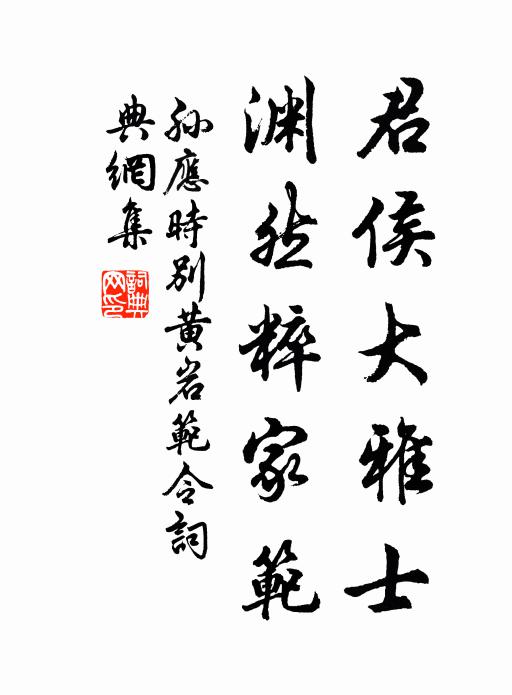 君侯大雅士
渊然粹家範
孙應時别黄岩範令詞
典網集
詞典网印